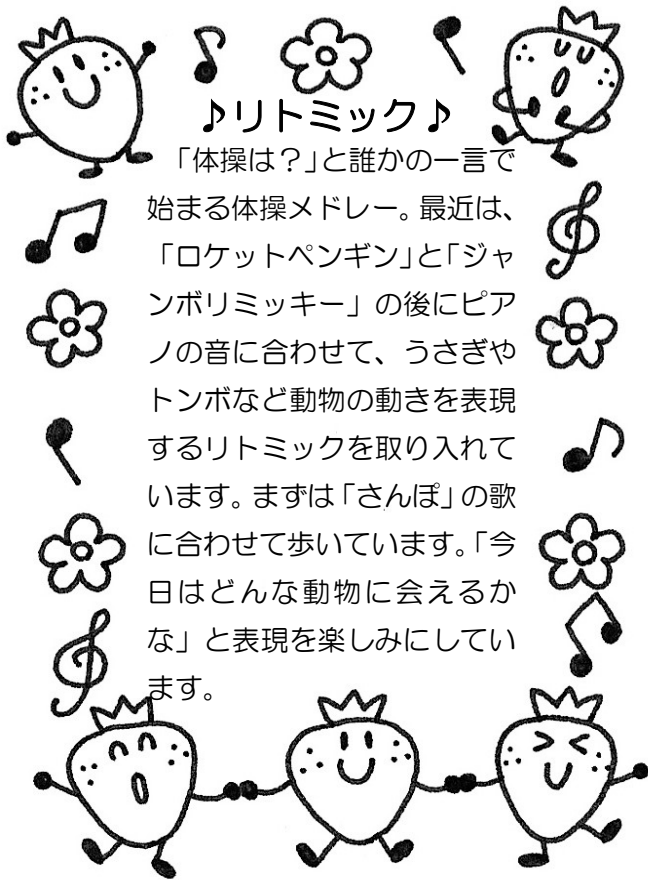 ♪リトミック♪
「体操は？」と誰かの一言で
始まる体操メドレー。最近は、
「ロケットペンギン」と「ジャ
ンボリミッキー」の後にピア
ノの音に合わせて、うさぎや
トンボなど動物の動きを表現
するリトミックを取り入れて
います。まずは「さんぽ」の歌
に合わせて歩いています。「今
日はどんな動物に会えるか
な」と表現を楽しみにしてい
ます。